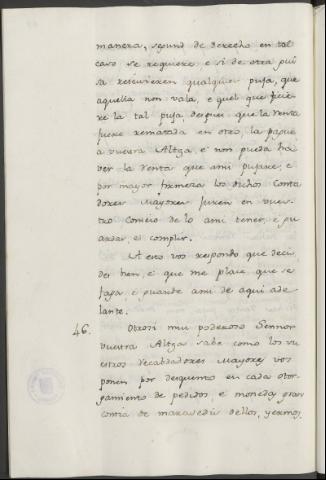 manera, segund de derecho en tal
caso se requiere e si de otra gui
sa recivieren qualquier puja, que
aquella non vala, e quel que ficie
re la tal puja, despues que la renta
fuere rematada en otro, la pague
a vuestra Altza e non pueda ha
ver la renta que ansi pujare, e
por mayor firmeza los dichos Conta
dores Mayores juren en vues
tro Consejo de lo ansi tener, e gu
ardar, et complir.
A esto vos respondo, que deci
des bien, e que me place que se
faga e guarde ansi de aqui ade
lante.
46. Otrosi mui poderoso Sennor
vuestra Altza sabe como los vu
estros Recabdadores Mayores vos
ponen por descuento en cada otor
gamiento de pedidos, e monedas gran
contia de maravedis dellos, yermos